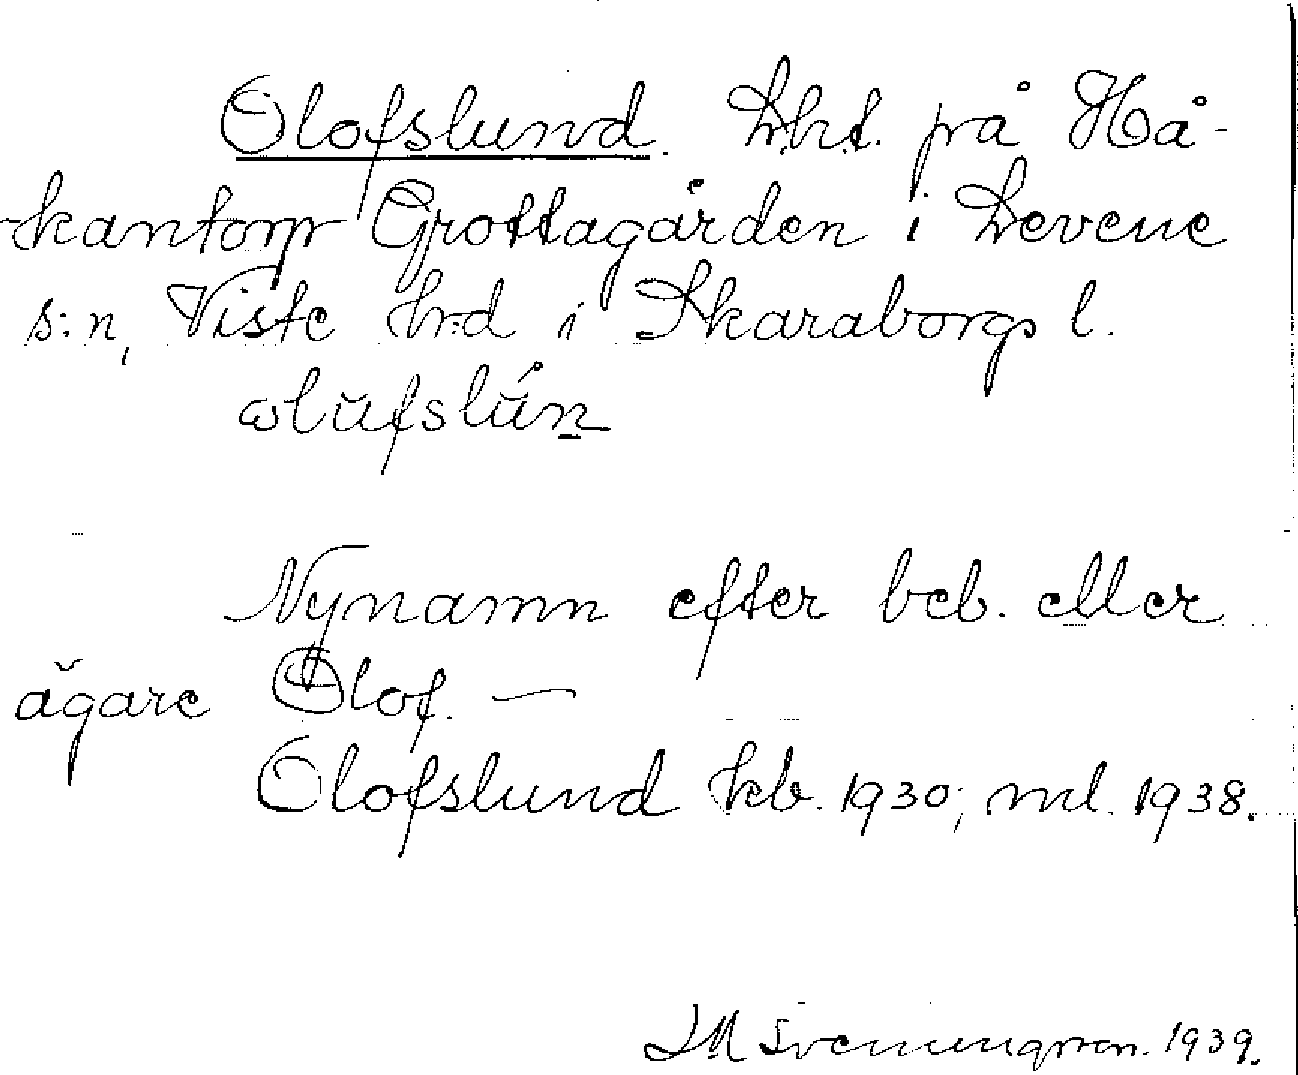 Olofslund. Lht. på Hå-
kantorp Grottagården i Levene
s:n, Viste hrd i Skaraborgs l.
ωlŭfslŭ́n
Nynamn efter beb. eller
ägare Olof. —
Olofslund kb. 1930; ml. 1938.
J M Svenungsson. 1939.